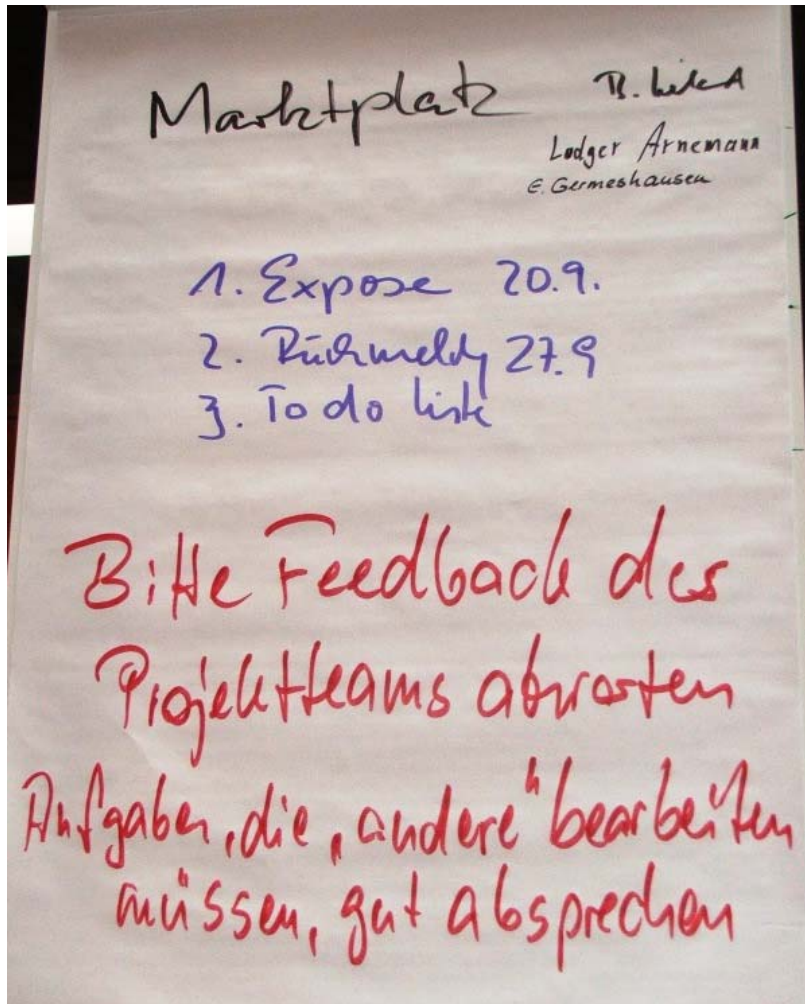 Marktplatz
B.
Ludger Arnemann
E. Germeshausen
1. Expose 20.9.
2. Rückmeldg 27.9
3. To do liste
Bitte Feedback des
Projektteams abwarten
Aufgaben, die „andere" bearbeiten
müssen, gut absprechen